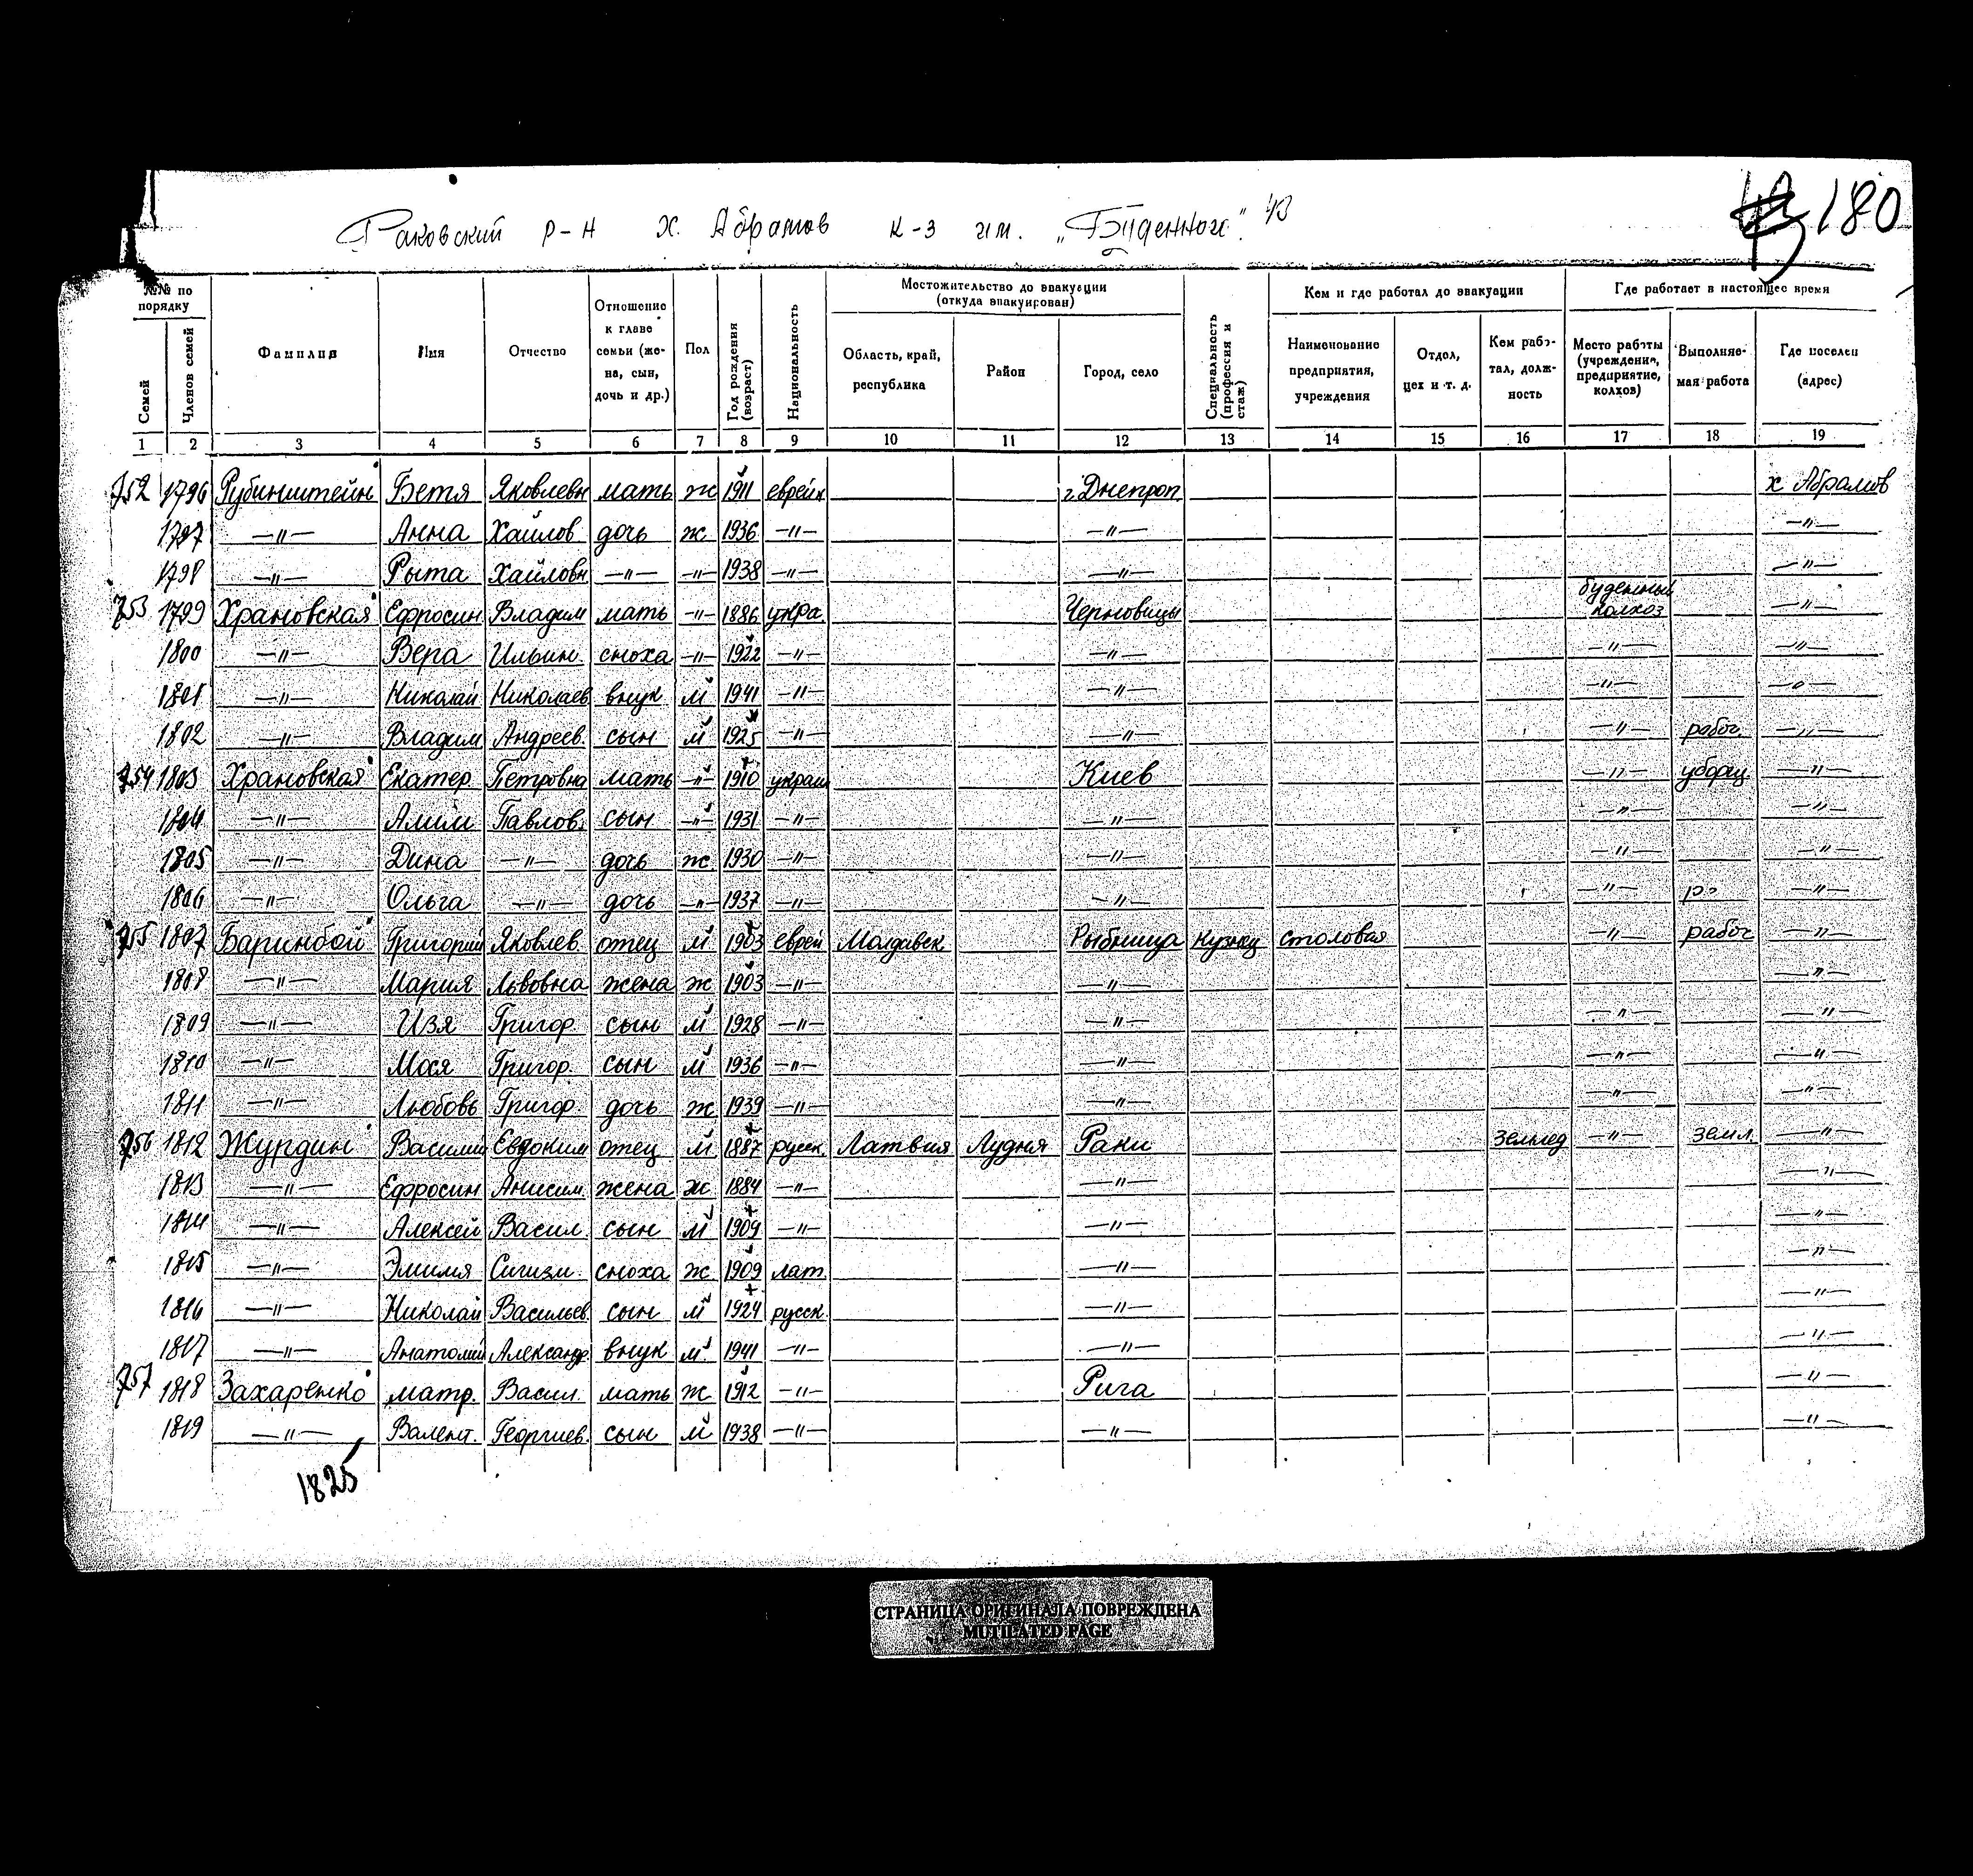 180
Раковский р-н х. Абрамов к-з им. „Буденного" 43
№№ по порядку
Местожительство до эвакуации (откуда эвакуирован)
Кем и где работал до эвакуации
Где работает в настоящее время
Семей
Членов семей
Фамилия
Имя
Отчество
Отношение к главе семьи (жена, сын, дочь и др.)
Пол
Год рождения (возраст)
Национальность
Область, край, республика
Район
Город, село
Специальность (профессия и стаж)
Наименование предприятия, учреждения
Отдел, цех и т. д.
Кем работал, должность
Место работы (учреждение, предприятие, колхоз)
Выполняемая работа
Где поселен (адрес)
1 2 3 4 5 6 7 8 9 10 11 12 13 14 15 16 17 18 19
752 1796 Рубинштейн Бетя Яковлевн мать ж 1911 еврейк г. Днепроп х Абрамов
1797 —"— Анна Хаилов дочь ж 1936 —"— —"— —"—
1798 —"— Рыта Хайловн —"— —"— 1938 —"— —"— —"—
753 1799 Храновская Ефросин Владим мать —"— 1886 укра. Черновицы буденный колхоз —"—
1800 —"— Вера Ильин. сноха —"— 1922 —"— —"— —"— —"—
1801 —"— Николай Николаев внук м 1941 —"— —"— —"— —"—
1802 —"— Владим Андреев. сын м 1925 —"— —"— —"— рабоч. —"—
754 1803 Храновская Екатер. Петровна мать —"— 1910 украин Киев —"— уборщ. —"—
1804 —"— Алим Павлов. сын —"— 1931 —"— —"— —"— —"—
1805 —"— Дина —"— дочь ж 1930 —"— —"— —"— —"—
1806 —"— Ольга —"— дочь —"— 1937 —"— —"— —"— —"—
755 1807 Баринбой Григорий Яковлев. отец м 1903 еврей Молдавск. Рыбница кузнец столовая —"— рабоч —"—
1808 —"— Мария Львовна жена ж 1903 —"— —"— —"—
1809 —"— Изя Григор. сын м 1928 —"— —"— —"— —"—
1810 —"— Мося Григор. сын м 1936 —"— —"— —"— —"—
1811 —"— Любовь Григор. дочь ж 1939 —"— —"— —"— —"—
756 1812 Журдин Василий Евдоким отец м 1887 русск. Латвия Лудня Раки землед —"— земл. —"—
1813 —"— Ефросин Анисим. жена ж 1884 —"— —"— —"—
1814 —"— Алексей Васил сын м 1909 —"— —"— —"—
1815 —"— Эмилия Сигизм. сноха ж 1909 лат. —"— —"—
1816 —"— Николай Васильев сын м 1924 русск. —"— —"—
1817 —"— Анатолий Александр. внук м 1941 —"— —"— —"—
757 1818 Захаренко матр. Васил. мать ж 1912 —"— Рига —"—
1819 —"— Валент. Георгиев. сын м 1938 —"— —"— —"—
1825
СТРАНИЦА ОРИГИНАЛА ПОВРЕЖДЕНА
MUTILATED PAGE